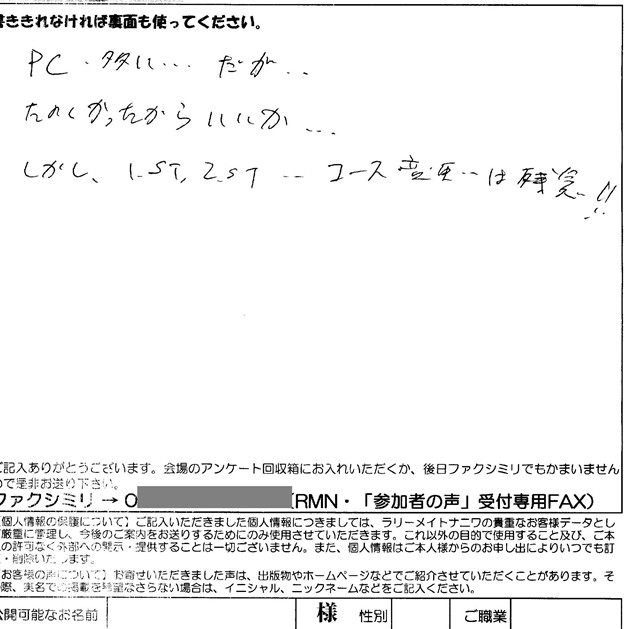 書ききれなければ裏面も使ってください。
PC・タタに… だが‥
たのしかったからいいか…
しかし、1.ST, 2.ST ‥ コース変更‥は残念‥!!
ご記入ありがとうございます。会場のアンケート回収箱にお入れいただくか、後日ファクシミリでもかまいません
ので是非お送り下さい。
ファクシミリ → 0 (RMN・「参加者の声」受付専用FAX)
個人情報の保護について】ご記入いただきました個人情報につきましては、ラリーメイトナニワの貴重なお客様データとし
厳重に管理し、今後のご案内をお送りするためにのみ使用させていただきます。これ以外の目的で使用すること及び、ご本
の許可なく外部への開示・提供することは一切ございません。また、個人情報はご本人様からのお申し出によりいつでも訂
・削除いたします。
お客様の声について】お寄せいただきました声は、出版物やホームページなどでご紹介させていただくことがあります。そ
際、実名での掲載を希望なさらない場合は、イニシャル、ニックネームなどをご記入ください。
公開可能なお名前 様 性別 ご職業